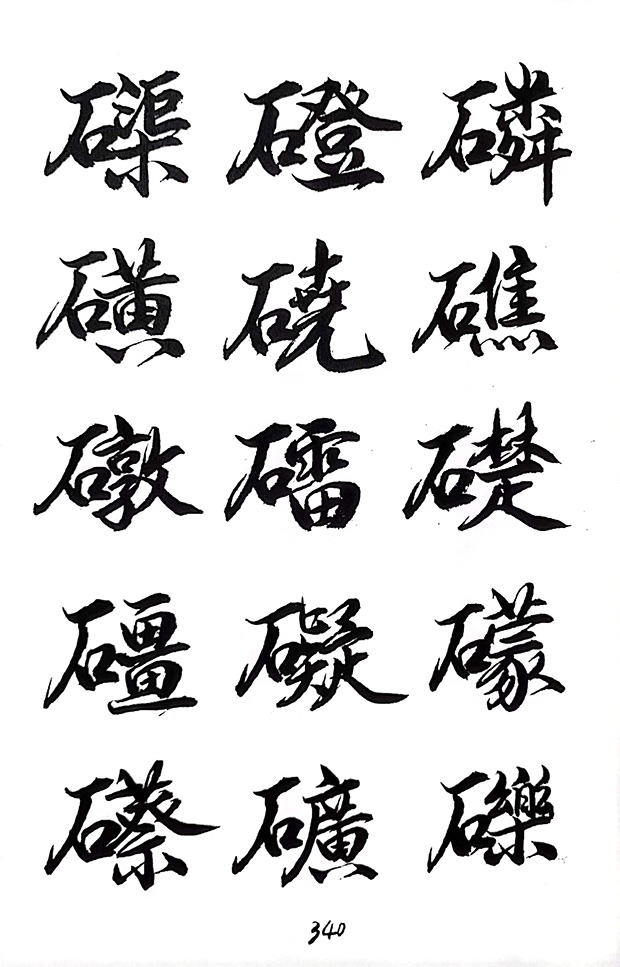 磲磴磷
磺磽礁
礅礌礎
礓礙礞
礤礦礫
340